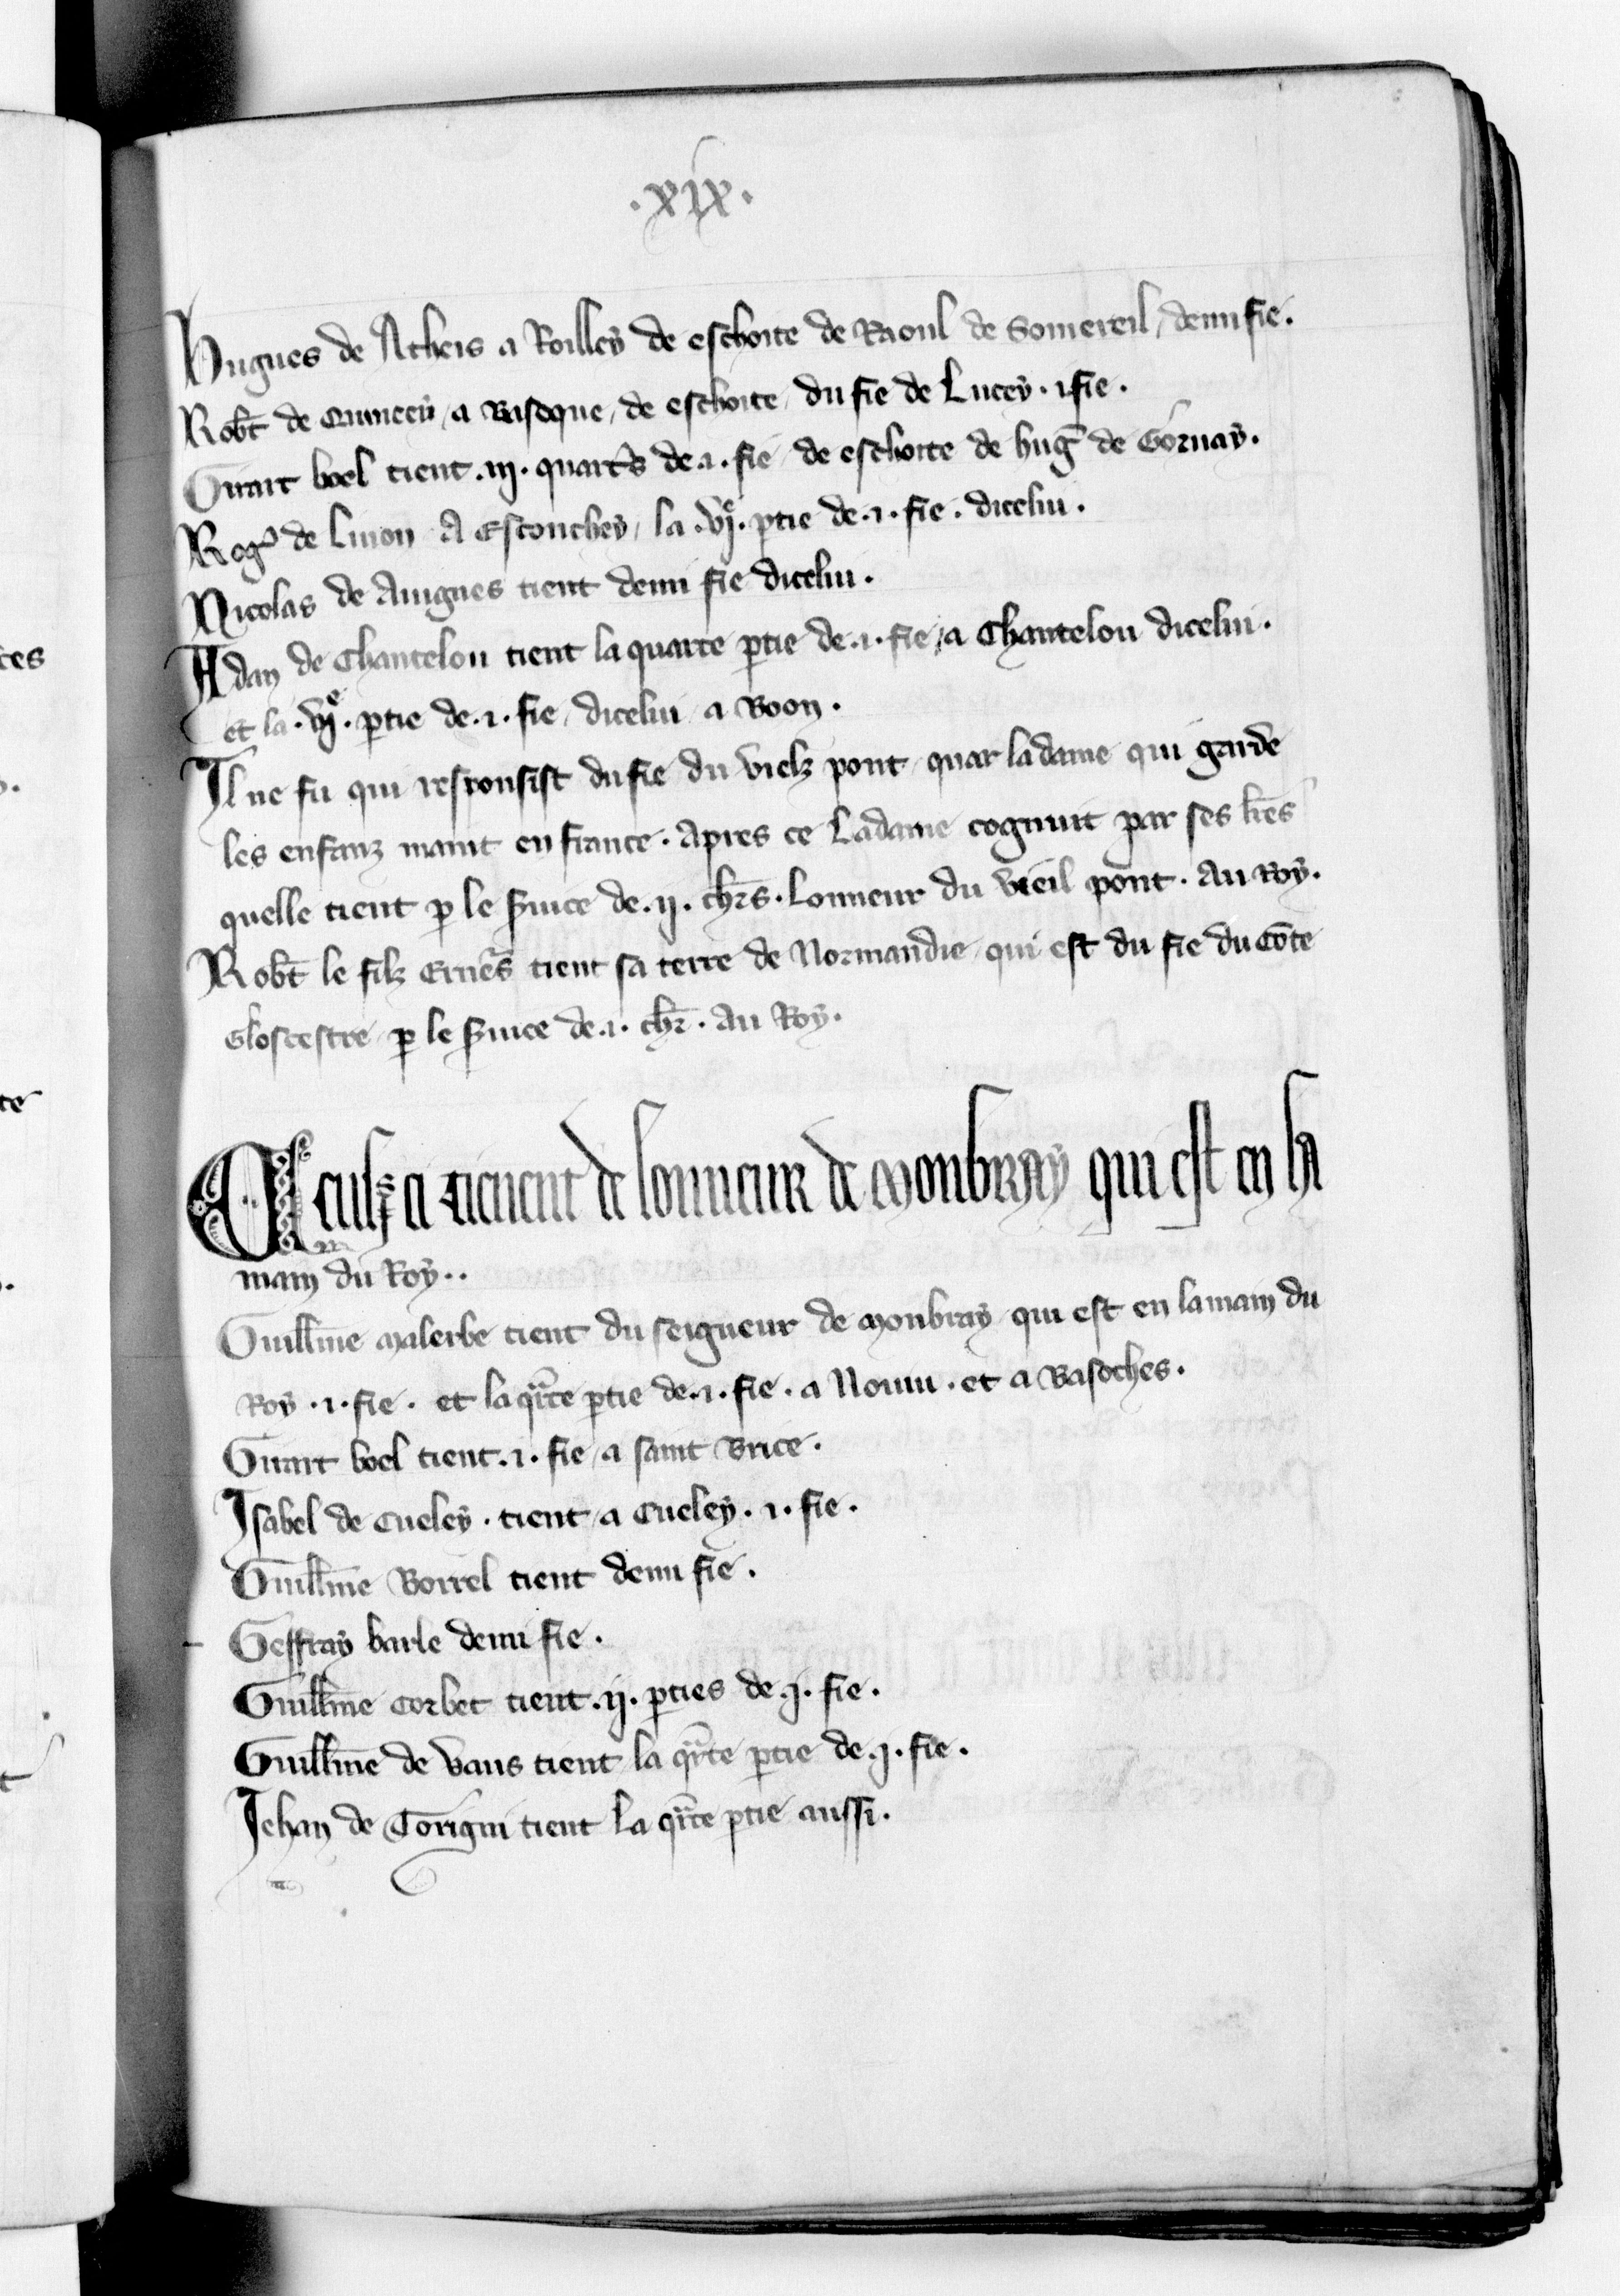 .xix.
Hugues de Atheis a Roilley de eschoite de Raoul de Somereil, demi fie.
Robt̄ de Quincey, a Basoque, de eschoite, du fie de Lucey . i fie.
Girart boel tient .iij. quart̄s de .i. fie, de eschoite de huḡ de Gornay.
Rog̾ de Linon A Esconchey, la .vjᵉ. ꝑtie de .i. fie. dicelui.
Nicolas de Auignes tient demi fie dicelui.
Adan de Chantelou tient la quarte ꝑtie de .i. fie, a Chantelou dicelui.
et la .vjᵉ. ꝑtie de .i. fie, dicelui a Boon.
Il ne fu qui responsist du fie du vielz pont, quar la dame qui garde
les enfanz maint en france. Apres ce La dame cognuit par ses lr̄es
quelle tient ꝑ le s̄uice de .ij. chr̄s. Lonneur du vieil pont. Au Roy.
Robt̄ le filz Erneis̄ tient sa terre de Normandie, qui est du fie du cōte
Glocestre, ꝑ le s̄uice de .i. chr̄. Au Roy.
Ceulz ci tienent de lonneur de Monbray qui est en la
main du Roy..
Guill̄me Malerbe tient du seigneur de Monbray, qui est en la main du
Roy . i . fie . et la qͣrte ꝑtie de .i. fie . a Nouiu . et a Basoches.
Girart boel tient .i. fie, a saint Brice.
Isabel de Cueley . tient, a Cueley . i . fie.
Guill̄me Borrel tient demi fie.
Geffray barle demi fie.
Guill̄me Corbet tient .ij. ꝑties de .j. fie.
Guill̄me de Vaus tient la qͣrte ꝑtie de .j. fie.
Jehan de Torigni tient la qͣrte ꝑtie aussi.